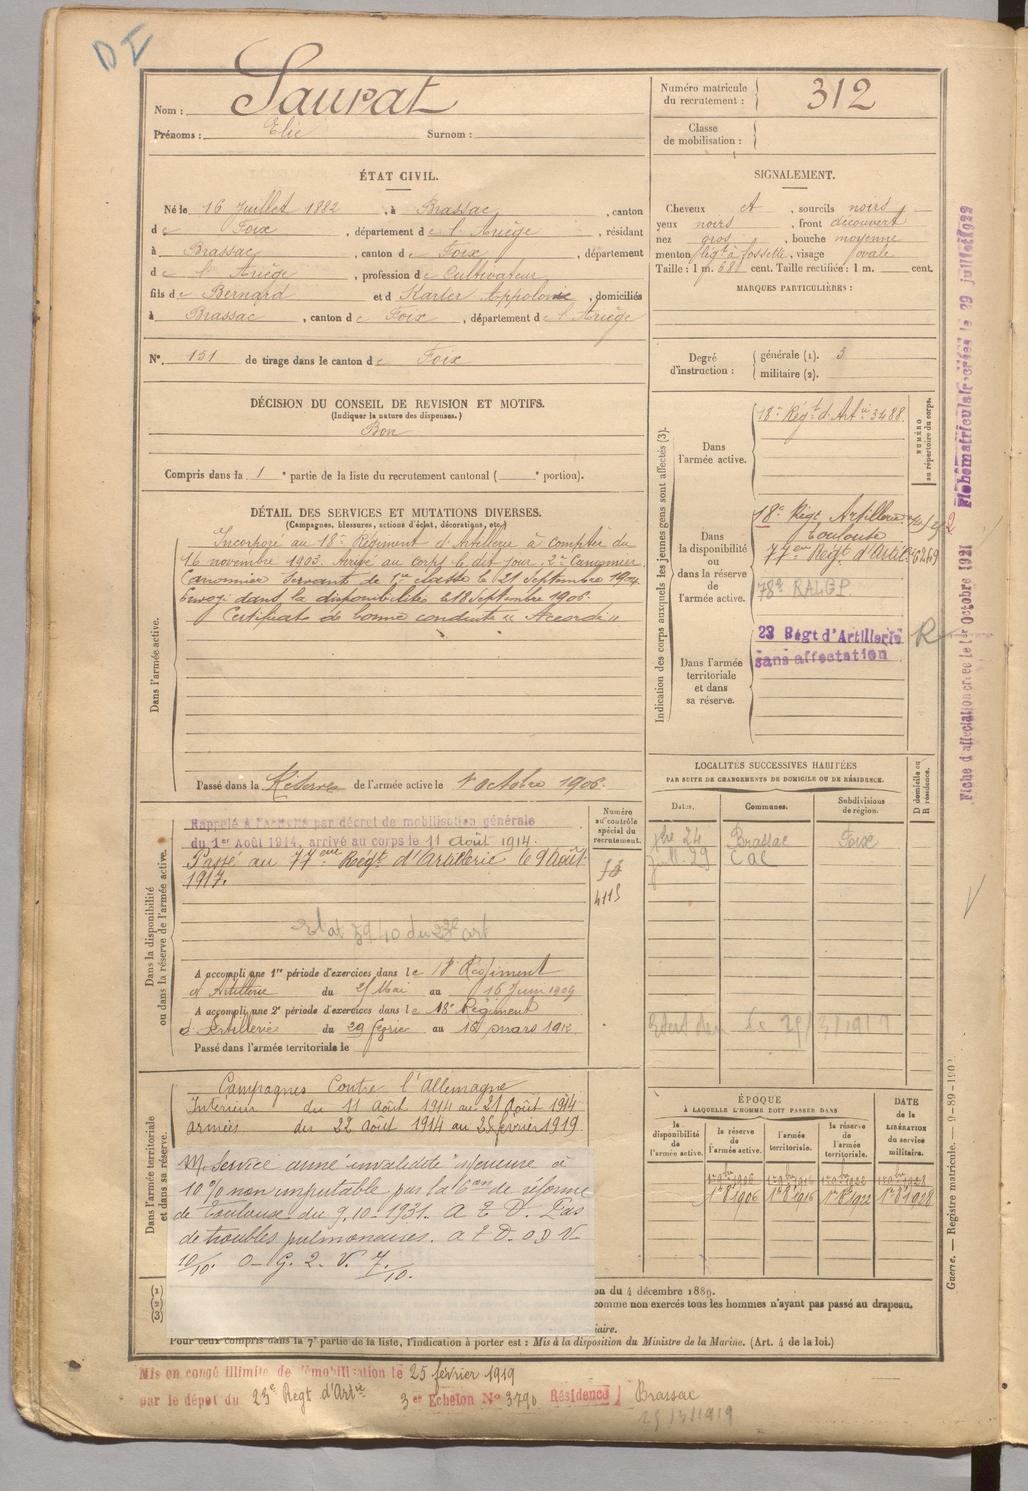 DI
Nom : Saurat
Prénoms : Elie Surnom :
Numéro matricule du recrutement : 312
Classe de mobilisation :
ÉTAT CIVIL.
Né le 16 Juillet 1882, à Brassac, canton
de Foix, département de l'Ariège, résidant
à Brassac, canton de Foix, département
de l'Ariège, profession de Cultivateur
fils de Bernard et d Karler Appolonie, domiciliés
à Brassac, canton de Foix, département de l'Ariège
N° 151 de tirage dans le canton de Foix
SIGNALEMENT.
Cheveux, sourcils noirs
yeux noirs, front découvert
nez gros, bouche moyenne
menton à fossette, visage ovale
Taille : 1 m. 681 cent. Taille rectifiée : 1 m. cent.
MARQUES PARTICULIÈRES :
Degré d'instruction : générale (1). 3
militaire (2).
DÉCISION DU CONSEIL DE REVISION ET MOTIFS.
(Indiquer la nature des dispenses.)
Bon
Compris dans la 1e partie de la liste du recrutement cantonal ( e portion).
DÉTAIL DES SERVICES ET MUTATIONS DIVERSES.
(Campagnes, blessures, actions d'éclat, décorations, etc.)
Dans l'armée active.
Incorporé au 18e Régiment d'Artillerie à compter du
16 novembre 1903. Arrivé au corps le dit jour, 2e Canonnier
Canonnier Servant de 1re classe le 21 Septembre 1904.
Envoyé dans la disponibilité le 18 Septembre 1906.
Certificat de bonne conduite "Accordé"
Passé dans la Réserve de l'armée active le 1er octobre 1906.
Indication des corps auxquels les jeunes gens sont affectés (3).
NUMÉRO au répertoire du corps.
Dans l'armée active.
18e Régt d'Artie 3488
Dans la disponibilité ou dans la réserve de l'armée active.
18e Régt Artillerie
Toulouse
77eme Régt d'Artie 6269
78e RALGP.
Dans l'armée territoriale et dans sa réserve.
23 Régt d'Artillerie R
sans affectation
Fiche d'affectation créée le 1er Octobre 1921 Fiche matriculaire créée le 29 juillet 1922
Dans la disponibilité ou dans la réserve de l'armée active.
Numéro au contrôle spécial du recrutement.
Rappelé à l'activité par décret de mobilisation générale
du 1er Août 1914, arrivé au corps le 11 Août 1914.
Passé au 77eme Régt d'Artillerie le 9 Août
1917.
4115
Etat 3940 du 23e art
A accompli une 1re période d'exercices dans le 18e Régiment
d'Artillerie du 25 Mai au 16 Juin 1909
A accompli une 2e période d'exercices dans le 18e Régiment
d'Artillerie du 29 février au 16 mars 1912
Passé dans l'armée territoriale le
LOCALITÉS SUCCESSIVES HABITÉES
PAR SUITE DE CHANGEMENTS DE DOMICILE OU DE RÉSIDENCE.
Dates. Communes. Subdivisions de région. D domicile ou R résidence.
24 Brassac Foix
juil. 29
Dans l'armée territoriale et dans sa réserve.
Campagnes Contre l'Allemagne
Intérieur du 11 Août 1914 au 21 Août 1914
armées du 22 Août 1914 au 25 février 1919.
M. Service armé invalidité inférieure à
10 % non imputable par la 6e con de réforme
de Toulouse du 9.10.1931. A E D. Pas
de troubles pulmonaires.
10/10. O. G. 2. V. 7/10.
ÉPOQUE
À LAQUELLE L'HOMME DOIT PASSER DANS
la disponibilité de l'armée active. la réserve de l'armée active. l'armée territoriale. la réserve de l'armée territoriale.
DATE de la LIBÉRATION du service militaire.
1r 8bre 1906 1r 8bre 1916 1r 8bre 1922 1r 8bre 1928
on du 4 décembre 1889.
comme non exercés tous les hommes n'ayant pas passé au drapeau.
iaire.
Pour ceux compris dans la 7e partie de la liste, l'indication à porter est : Mis à la disposition du Ministre de la Marine. (Art. 4 de la loi.)
Guerre. — Registre matricule. — 9-89-1902
Mis en congé illimité de démobilisation le 25 février 1919
par le dépot du 23e Régt d'Artie 3er Echelon N° 3790 Résidence Brassac
25/3/1919